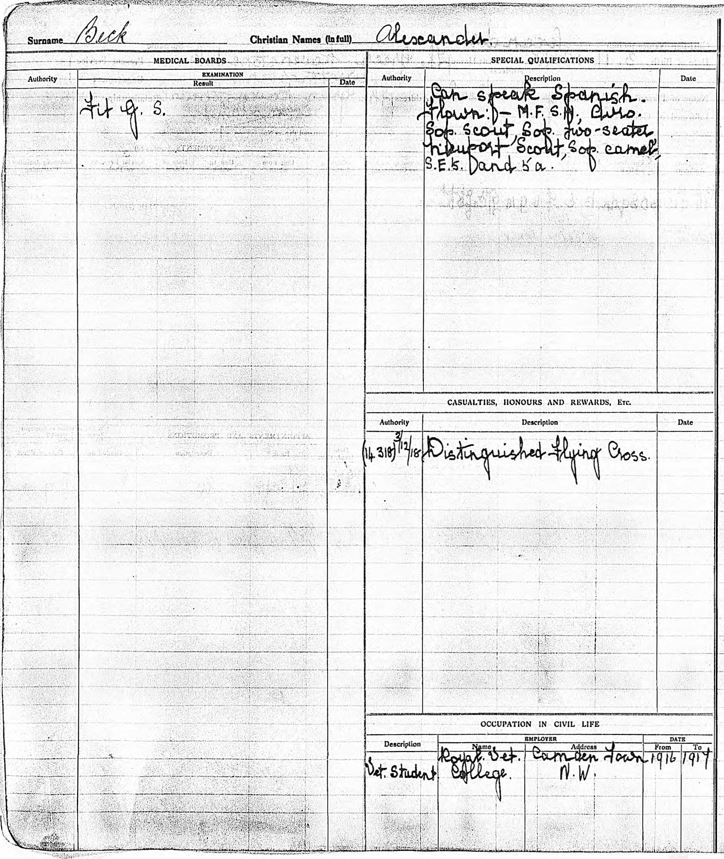 Surname Beck Christian Names (in full) Alexander.
MEDICAL BOARDS
Authority EXAMINATION Date
Result
Fit G. S.
SPECIAL QUALIFICATIONS
Authority Description Date
Can speak Spanish.
Flown:— M.F.S.H, Curo.
Sop. Scout, Sop. two-seater
Nieuport Scout, Sop. camel,
S.E.5. and 5a.
CASUALTIES, HONOURS AND REWARDS, Etc.
Authority Description Date
(14.318) 3/12/18 Distinguished Flying Cross.
OCCUPATION IN CIVIL LIFE
Description EMPLOYER DATE
Name Address From To
Royal. Vet. Camden Town 1916 1917
Vet. Student College. N.W.